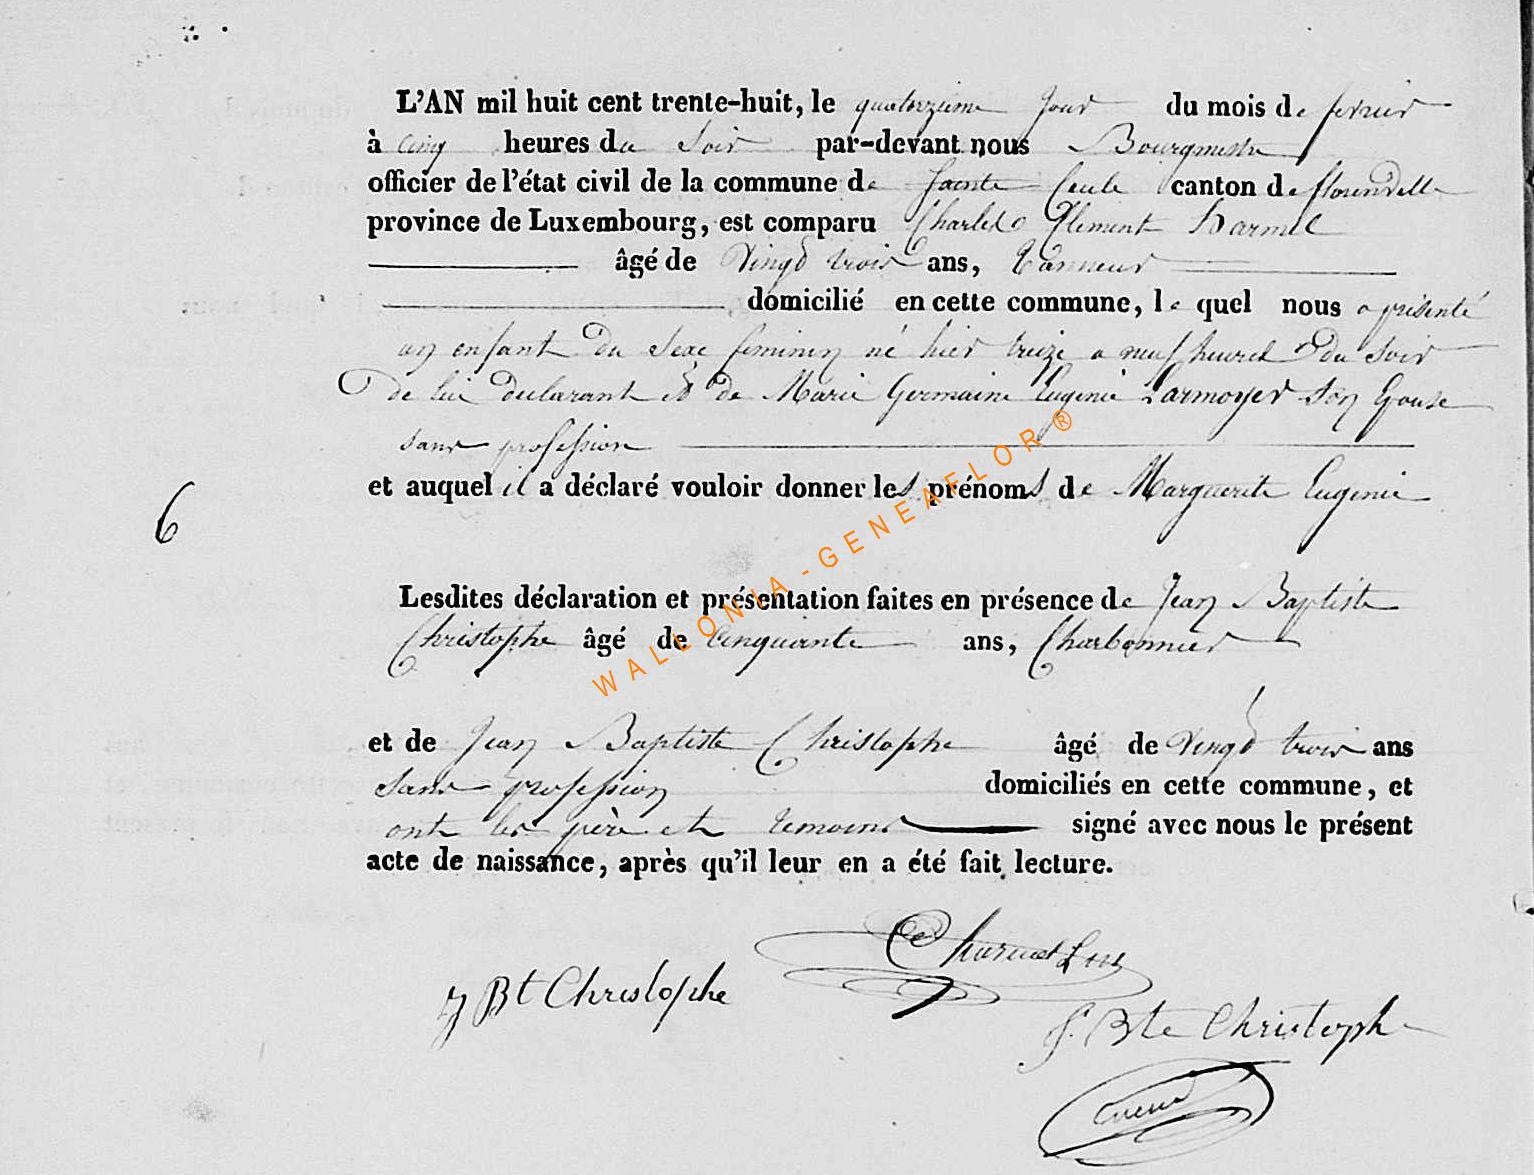 L'AN mil huit cent trente-huit, le quatorzieme jour du mois de fevrier
à cinq heures du soir par-devant nous Bourgmestre
officier de l'état civil de la commune de Sainte Cecile canton de florenville
province de Luxembourg, est comparu Charles Clement Harmel
âgé de Vingt trois ans, tanneur
domicilié en cette commune, le quel nous a présenté
un enfant du sexe feminin né hier treize a neuf heures du soir
de lui declarant et de Marie Germaine Eugenie Larmoyer son Epouse
sans profession
et auquel il a déclaré vouloir donner les prénoms de Marguerite Eugenie
6
Lesdites déclaration et présentation faites en présence de Jean Baptiste
Christophe âgé de cinquante ans, Charbonnier
et de Jean Baptiste Christophe âgé de Vingt trois ans
sans profession domiciliés en cette commune, et
ont les père et temoins signé avec nous le présent
acte de naissance, après qu'il leur en a été fait lecture.
J Bt Christophe
J. Bte Christophe
WALLONIA-GENEAFLOR®